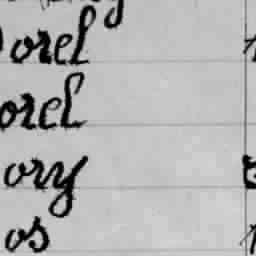 orel
orel
ory
os